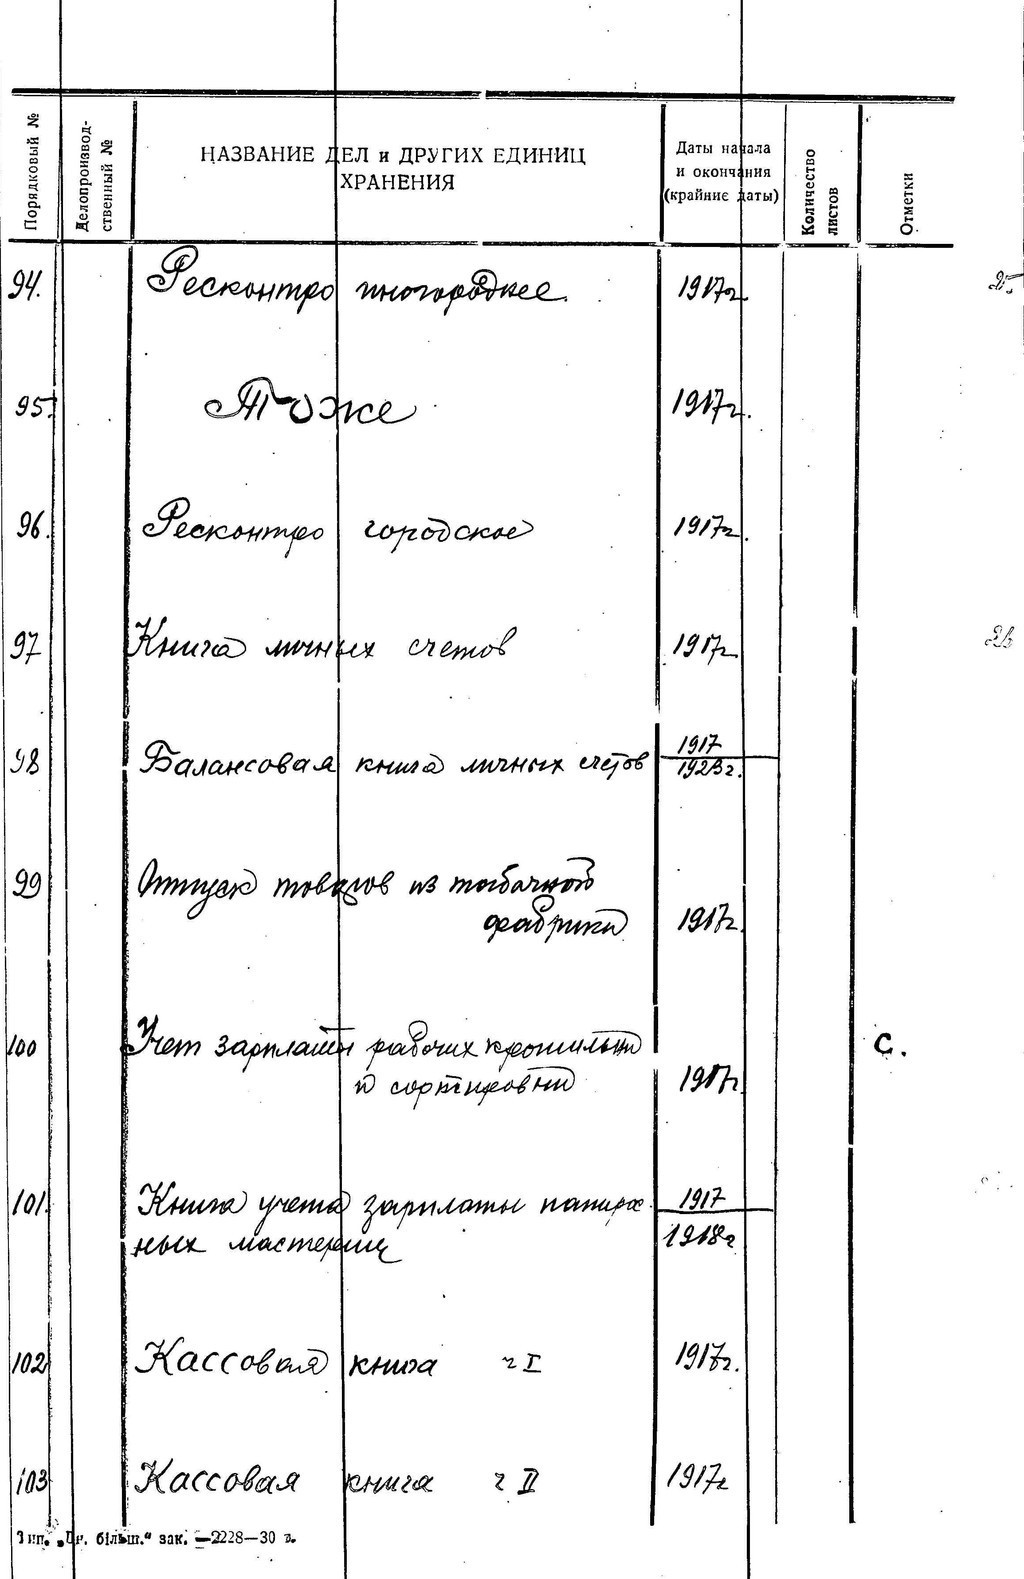 Порядковый №
Делопроизвод-
ственный №
НАЗВАНИЕ ДЕЛ и ДРУГИХ ЕДИНИЦ
ХРАНЕНИЯ
Даты начала
и окончания
(крайние даты)
Количество
листов
Отметки
94. Ресконтро иногороднее. 1917г.
95. То же 1917г.
96. Ресконтро городское 1917г.
97 Книга личных счетов 1917г.
98 Балансовая книга личных счетов 1917
1923г.
99 Отпуск товаров из табачной
фабрики 1917г.
100 Учет зарплаты рабочих крошильни С.
и сортировки 1917г.
101. Книга учета зарплаты папирос 1917
ных мастериц 1918г
102 Кассовая книга ч I 1917г.
103 Кассовая книга ч II 1917г
Тип. „Др. більш.“ зак. —2228—30 г.